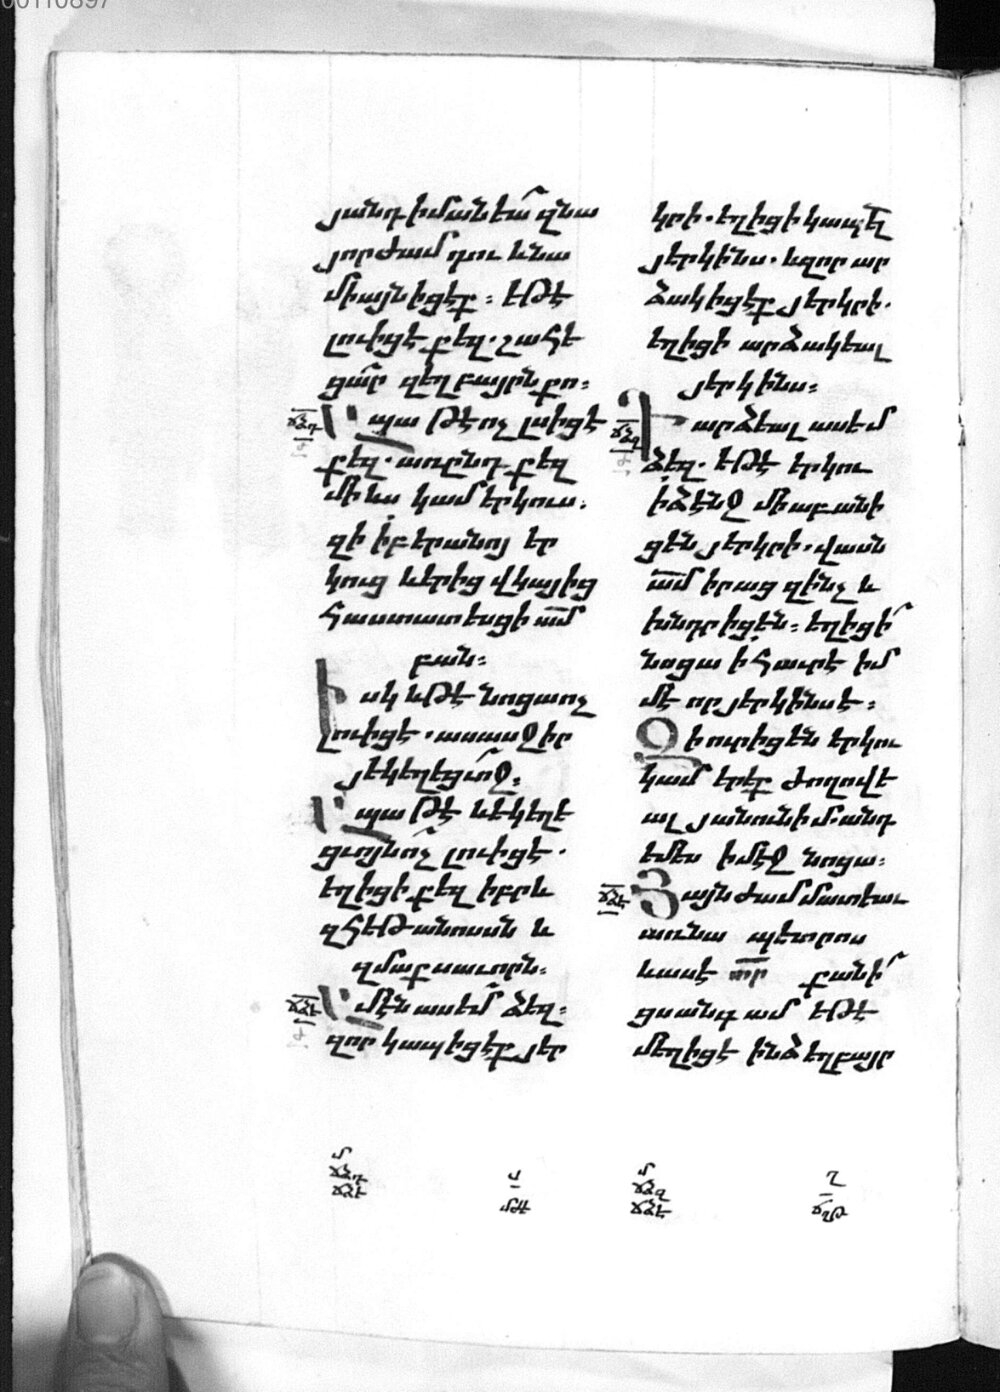 00110897
յանդիմանեա՛ զնա
յորժամ դու և նա
միայն իցէք։ եթէ
լուիցէ քեզ. շահե
ցա՛ր զեղբայրն քո։
Ապա թէ ոչ լսիցէ
քեզ. առ ընդ քեզ
մի ևս կամ երկուս։
զի ի բերանոյ եր
կուց և երից վկայից
հաստատեսցի ամ
բան։
Իսկ եթէ նոցա ոչ
լուիցէ. ասասջիր
յեկեղեցւոջ։
Ապա թէ և եկեղե
ցւոյն ո՛չ լուիցէ.
եղիցի քեզ իբրև
զհեթանոսսն և
զմաքսաւորն։
Ամէն ասեմ ձեզ։
զոր կապիցէք յեր
կրի. եղիցի կապել
յերկինս. և զոր ար
ձակիցէք յերկրի.
եղիցի արձակեալ
յերկինս։
Դարձեալ ասեմ
ձեզ. եթէ երկու
ի ձէնջ միաբանի
ցեն յերկրի. վասն
ամ իրաց զինչ և
խնդրիցեն։ եղիցի՛
նոցա ի հաւրէ իմ
մէ որ յերկինս է։
Զի ուր իցեն երկու
կամ երեք ժողովե
ալ յանուն իմ. անդ
եմ ես ի մէջ նոցա։
Յայնժամ մատեաւ
առ նա պետրոս
և ասէ տր քանի՛
ցս անգամ եթէ
մեղիցէ ինձ եղբայր
մ
ճձդ
ճձե
մ
ճձզ
ճձէ